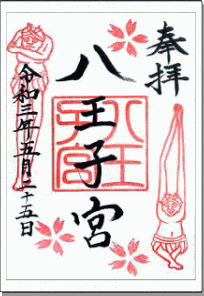 奉拝
八王子宮
八王子宮
令和三年五月二十五日